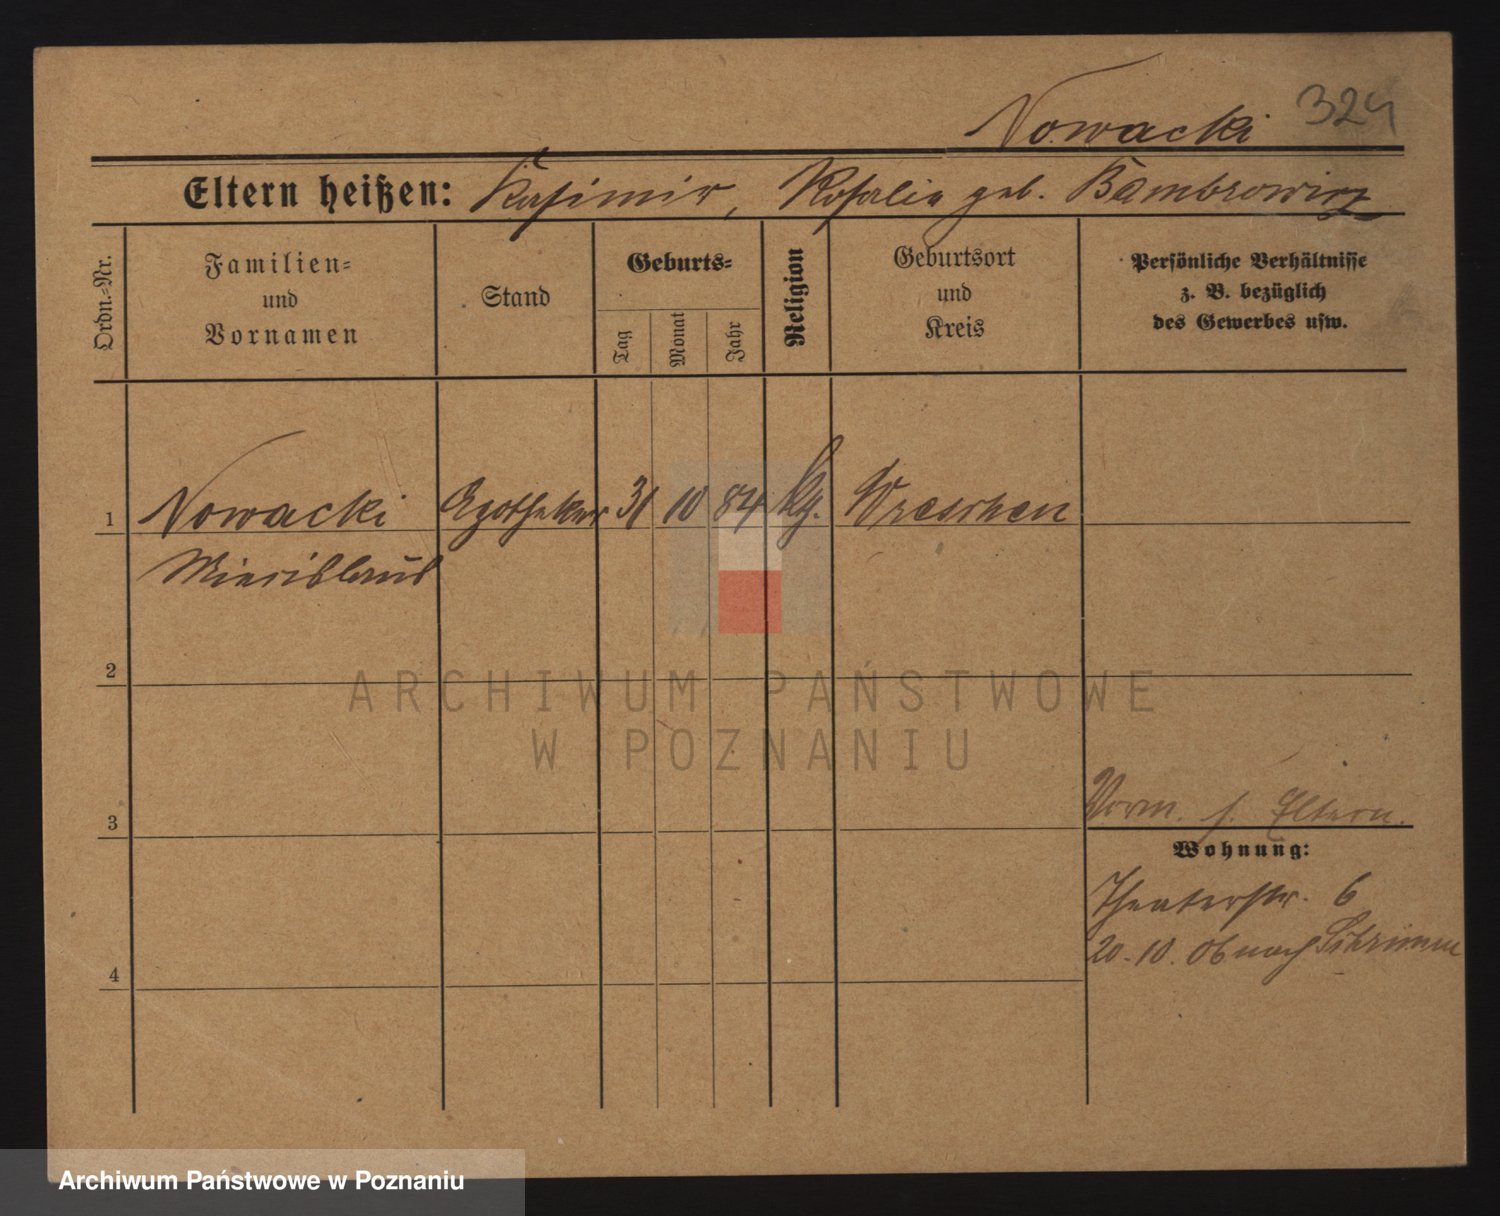 Nowacki 324
Eltern heißen: Kasimir, Rosalie geb. Bambrowicz
Ordn.-Nr.
Familien-
und
Vornamen
Stand
Geburts-
Tag
Monat
Jahr
Religion
Geburtsort
und
Kreis
Persönliche Verhältnisse
z. B. bezüglich
des Gewerbes usw.
1 Nowacki Apotheker 31 10 84 kg. Wreschen
Miecislaus
2
ARCHIWUM PAŃSTWOWE
W POZNANIU
3
Verm. s. Eltern.
Wohnung:
Theaterstr. 6
20. 10. 06 nach Schrimm
4
Archiwum Państwowe w Poznaniu